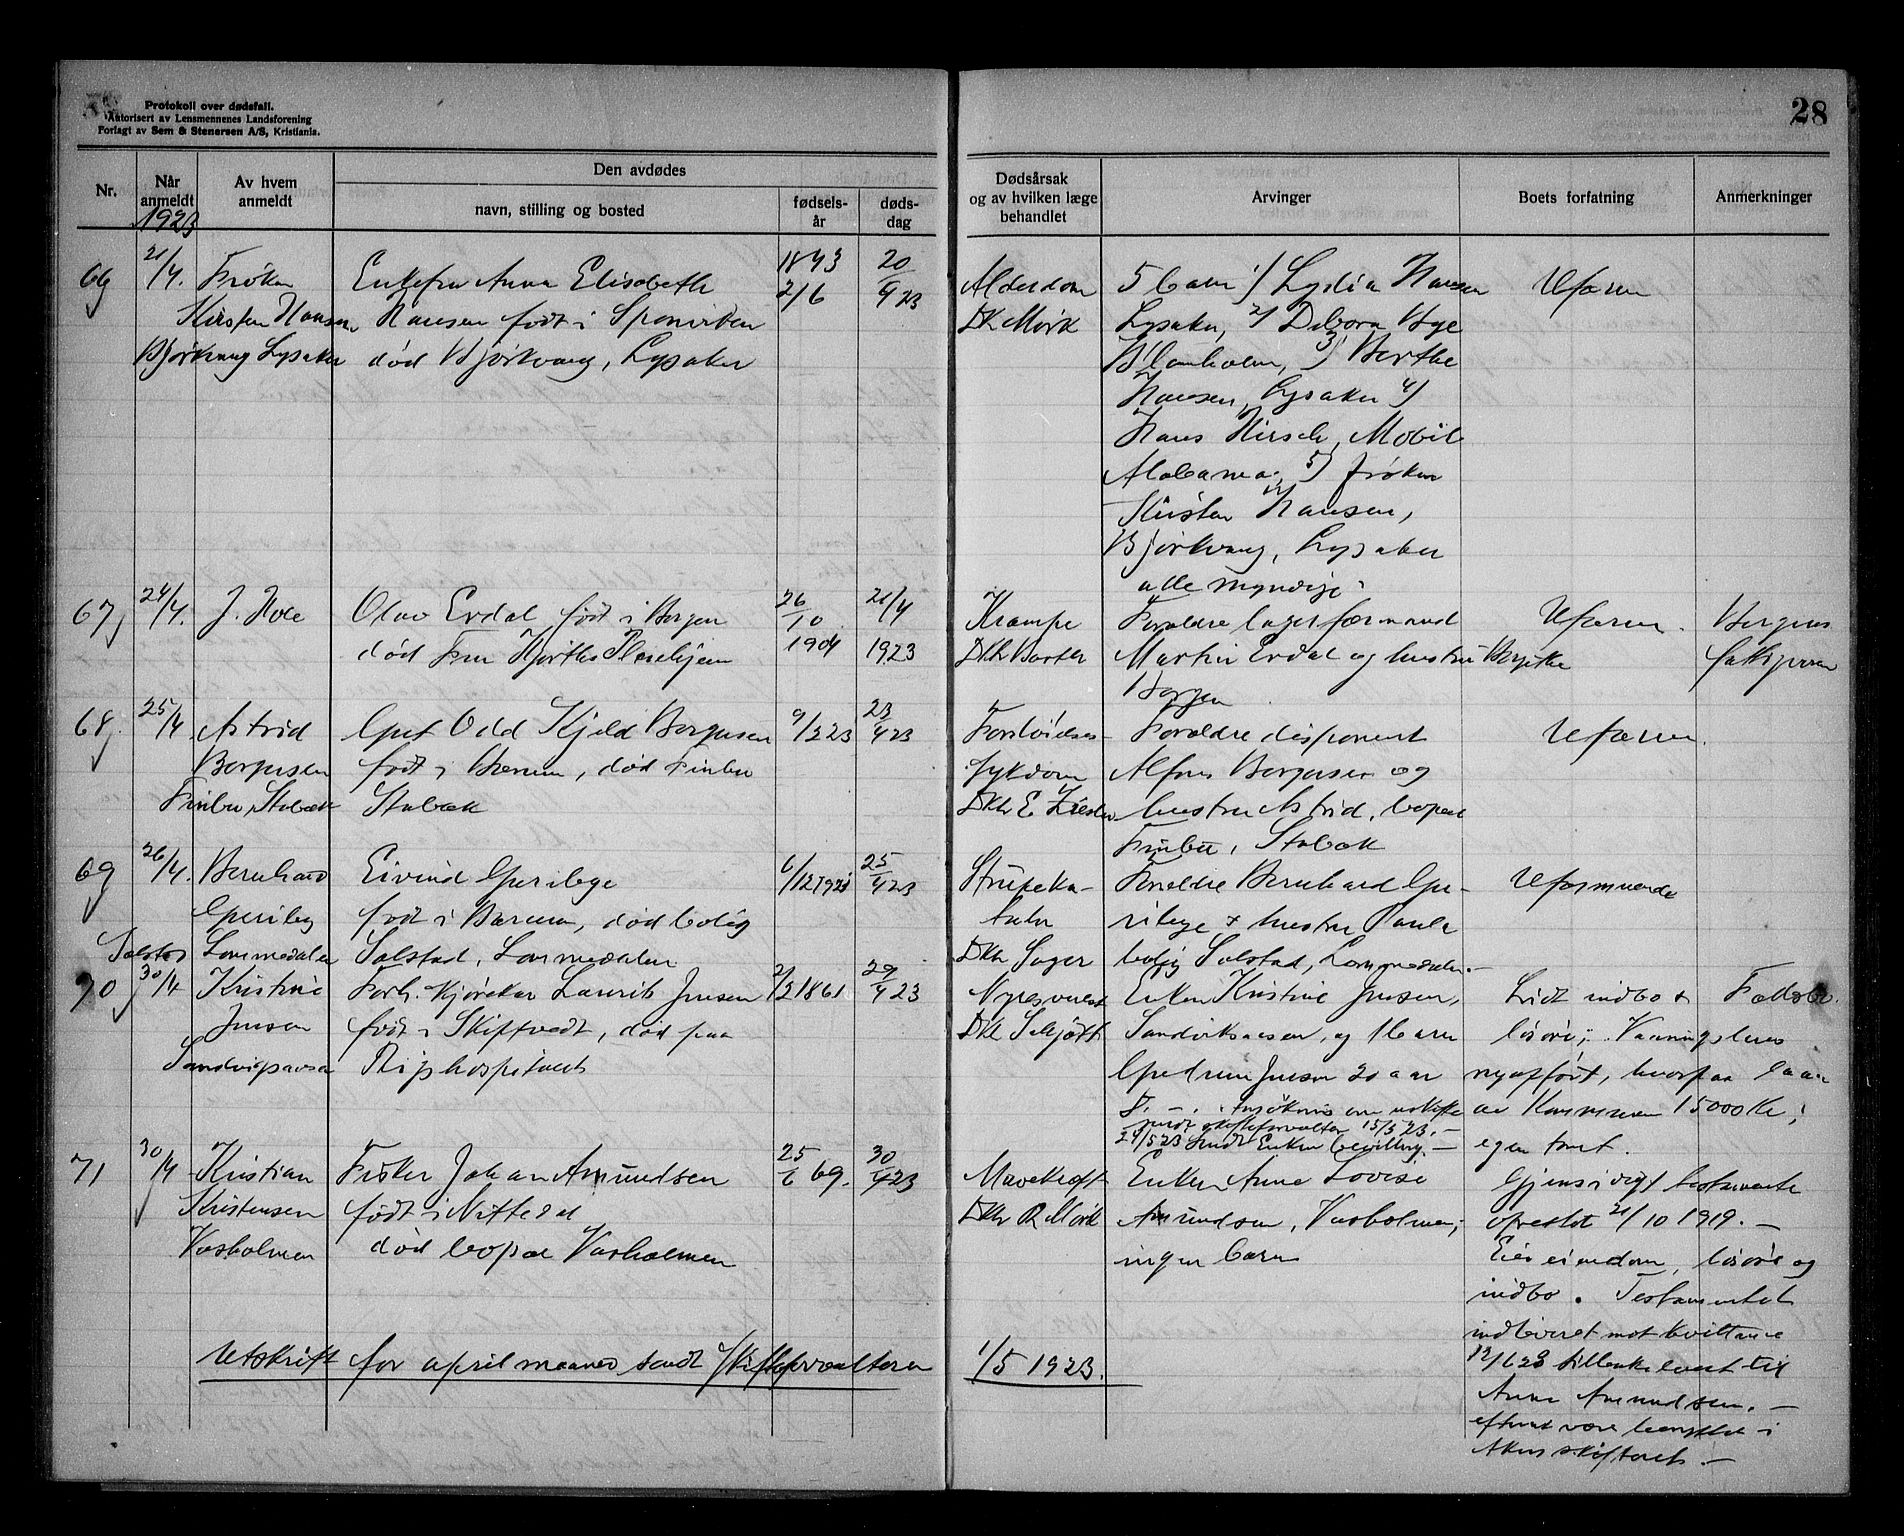 Protokoll over dødsfall.
Autorisert av Lensmennenes Landsforening
Forlagt av Sem & Stenersen A/S, Kristiania.
28
Nr.
Når anmeldt
1923
Av hvem anmeldt
Den avdødes
navn, stilling og bosted
fødsels-år
døds-dag
Dødsårsak og av hvilken læge behandlet
Arvinger
Boets forfatning
Anmerkninger
66
21/4.
Frøken
Kirsten Hansen
Bjørkvang Lysaker
Enkefru Anna Elisabeth
Hansen født i
død Bjørkvang, Lysaker
1843
2/6
20/4 23
Alderdom
Dr Mörk
5 barn 1) Lydia Hansen
Lysaker, 2) Debora Bye
3) Berthe
Hansen, Lysaker 4)
Hans Hirsch, Mobil
Alabama, 5) frøken
Kirsten Hansen,
Bjørkvang, Lysaker
alle myndige
Uformu
67
24/4.
J. Hole
Olav Erdal, født i Bergen
død Fru Hjorths Pleiehjem
26/10
1904
21/4
1923
Krampe
Forældre lagerformand
Martin Erdal og hustru
Bergen
Bergens
68
25/4
Astrid
Borgersen
Finbu, Stabæk
Gut Odd Kjeld Borgersen
født i Bærum, død Finbu
Stabæk
9/2 23
23/4 23
sykdom
Forældre disponent
Borgersen og
hustru Astrid, bopæl
Finbu, Stabæk
69
26/4.
Bernhard
Solstad Lommedalen
Eivind
født i Bærum, død bolig
Solstad, Lommedalen
6/12 1921
25/4 23
Strupeka-
tahr
Forældre Bernhard
& hustru Paula
bolig Solstad, Lommedalen.
Uformuende
70
30/4
Kristine
Jensen
Sandvigsaasen
Forh. Kjørekar Laurits Jensen
født i Skiptvedt, død paa
Rigshospitalet
2/2 1861
29/4 23
Enken Kristine Jensen,
Sandviksaasen, og 1 barn
Gudrun Jensen 20 aar
ansøkning om uskifte
sendt skifteforvalter 15/5 23. -
24/5 23 sendt Enken bevilling. -
Lidt indbo &
løsøre; Vaaningshus
nyopført, hvorpaa laan
av Kommunen 15000 Kr;
egen tomt.
71
30/4
Kristian
Kristensen
Fisker Johan Amundsen
født i Nittedal
død bopæl
25/6 69.
30/4 23
Mavekræft
Dr R Mörk
Enken Anne Lovise
Amundsen,
ingen barn
Gjensidigt testamente
oprettet 21/10 1919. -
Eier eiendom, løsøre og
indbo. Testamentet
indleveret mot kvittance
Anne Amundsen. -
i
Akers skifteret. -
Utskrift for april maaned sendt Skifteforvalteren 1/5 1923.